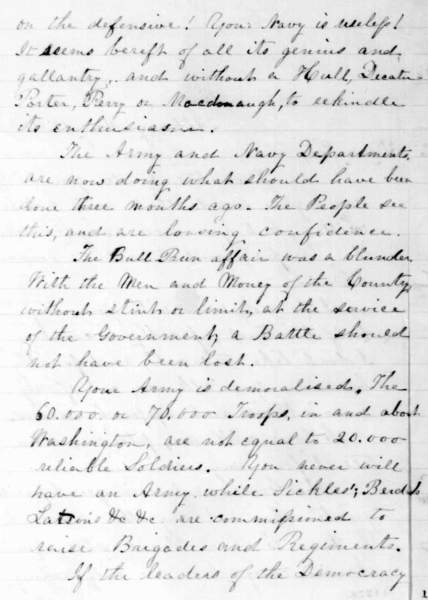 on the defensive! Your Navy is useless!
It seems bereft of all its genius and
gallantry, and without a Hull, Decatur
Porter, Perry or Macdonaugh, to rekindle
its enthusiasm.
The Army and Navy Departments,
are now doing what should have been
done three months ago. The People see
this, and are loosing confidence.
The Bull Run affair was a blunder.
With the Men and Money of the Country,
without stint or limit, at the service
of the Government, a Battle should
not have been lost.
Your Army is demoralised. The
60.000 or 70.000 Troops, in and about
Washington, are not equal to 20.000
reliable Soldiers. You never will
have an Army while Sickles',
&c &c are commissioned to
raise Bargades and Regiments.
If the leaders of the Democracy
1